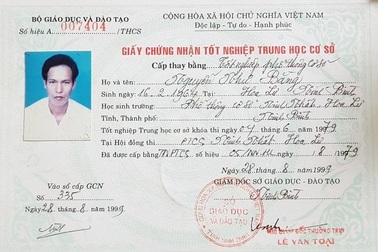 BỘ GIÁO DỤC VÀ ĐÀO TẠO
Số hiệu A 007404 /THCS
CỘNG HÒA XÃ HỘI CHỦ NGHĨA VIỆT NAM
Độc lập - Tự do - Hạnh phúc
GIẤY CHỨNG NHẬN TỐT NGHIỆP TRUNG HỌC CƠ SỞ
Cấp thay bằng Tốt nghiệp phổ thông cơ sở
Họ và tên: Nguyễn Như Băng
Sinh ngày 16. 2. 1964 Hoa Lư Ninh Bình
Học sinh trường: Phổ thông cơ sở Ninh Nhất, Hoa Lư
Tỉnh, Thành phố: Ninh Bình
Tốt nghiệp Trung học cơ sở khóa thi ngày 6 1979
Tại Hội đồng thi PTCS Ninh Nhất Hoa Lư
Đã được cấp bằng TNPTCS số 8 1979
Ngày 28 tháng 8 năm 1999
GIÁM ĐỐC SỞ GIÁO DỤC - ĐÀO TẠO
Ninh Bình
Vào sổ cấp GCN
Số 335
Ngày 28 tháng 8 năm 1999
SỞ
GIÁO DỤC
VÀ ĐÀO TẠO
GIÁM ĐỐC THƯỜNG TRỰC
LÊ VĂN TOẠI